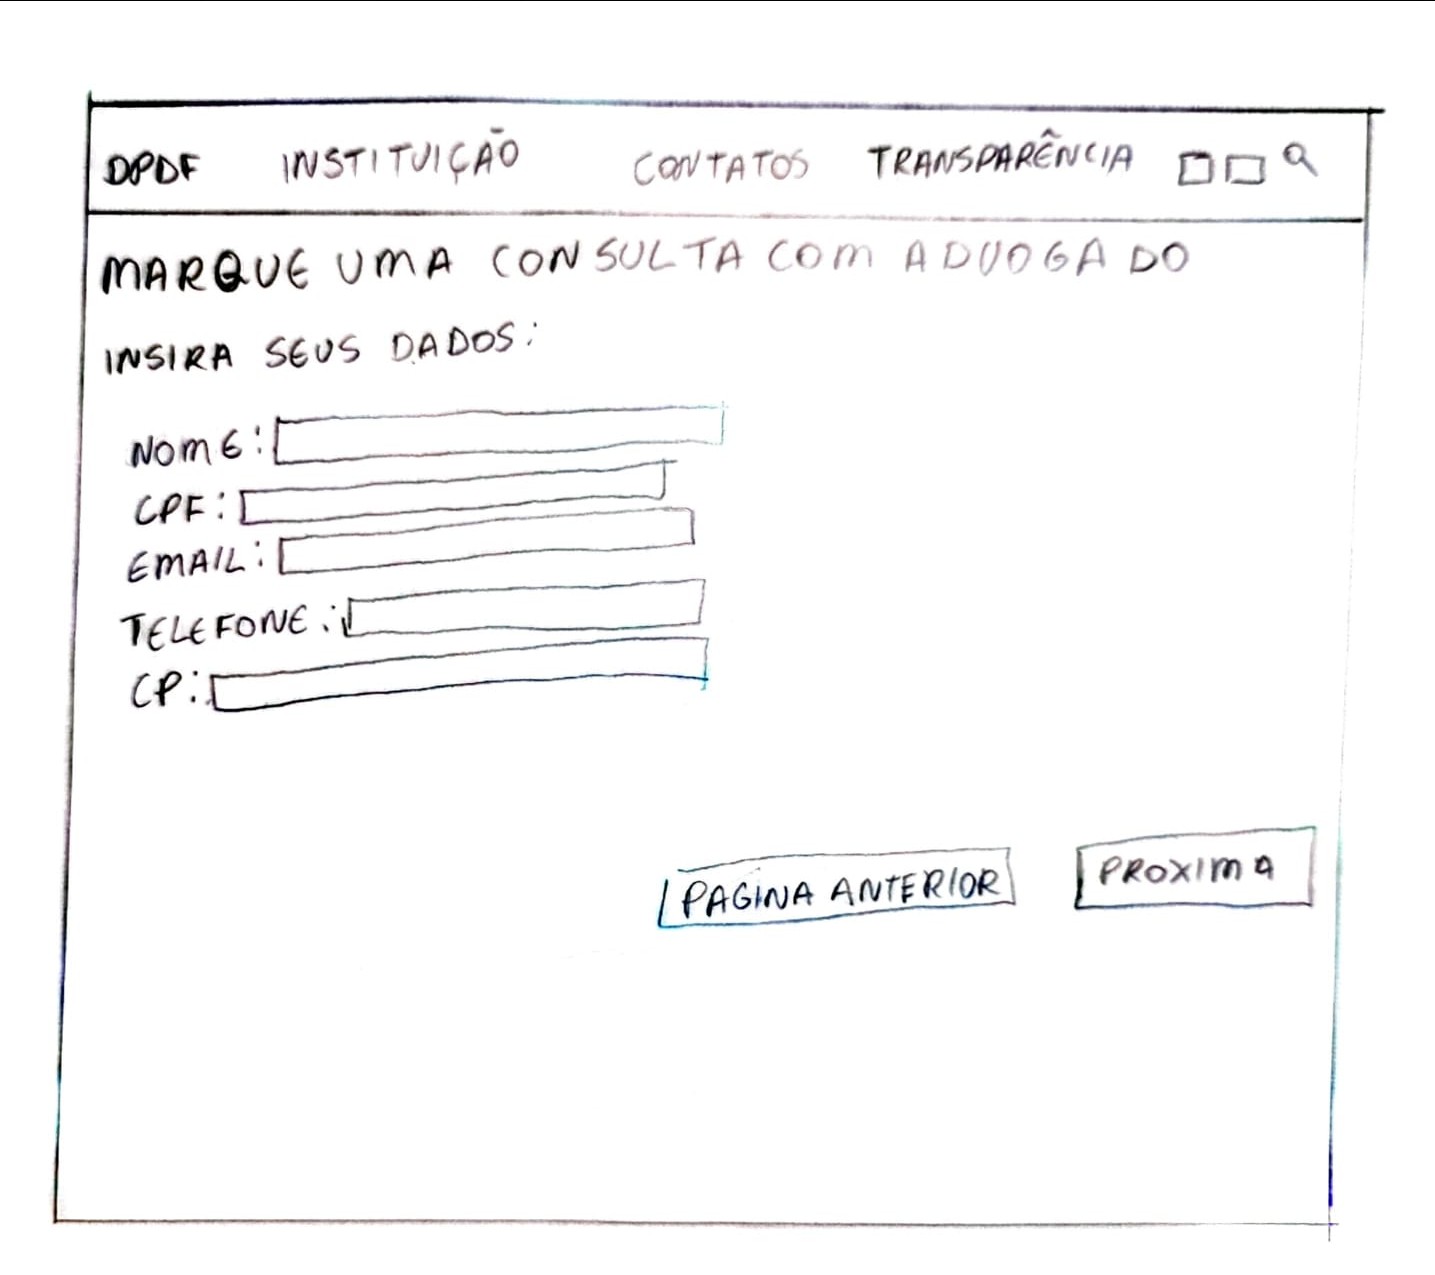 DPDF INSTITUIÇÃO CONTATOS TRANSPARÊNCIA
MARQUE UMA CONSULTA COM ADVOGADO
INSIRA SEUS DADOS:
NOME:
CPF:
EMAIL:
TELEFONE:
CP:
PAGINA ANTERIOR PROXIMA